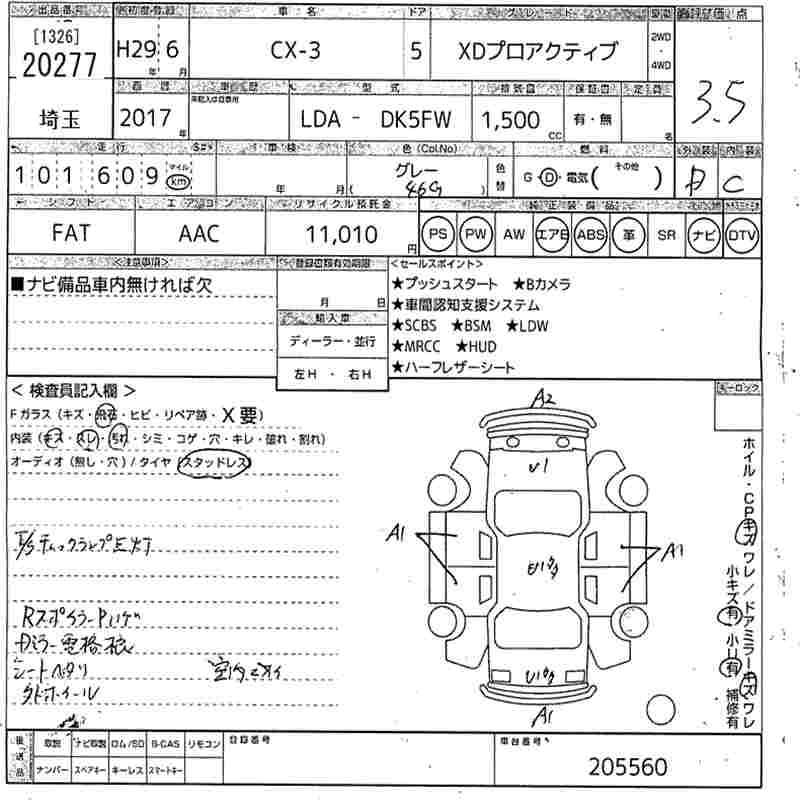 出品番号 初度登録 車名 ドア グレード 駆動 評価点
[1326]
20277
埼玉
H29 6
年 月
CX-3
5
XDプロアクティブ
2WD
・
4WD
3.5
車歴 型式 排気量 保証書 定員
2017
年
LDA - DK5FW
1,500
CC
有・無
名
走行 車検 色(Col.No) 燃料 外装 内装
101609
マイル
km
年 月
グレー
(46G)
色替
G・D・電気( その他 )
D
C
シフト エアコン リサイクル預託金 純正装備品
FAT
AAC
11,010
円
PS PW AW エアB ABS 革 SR ナビ DTV
<注意事項>
■ナビ備品車内無ければ欠
登録書類有効期限
月 日
輸入車
ディーラー・並行
左H ・ 右H
<セールスポイント>
★プッシュスタート ★Bカメラ
★車間認知支援システム
★SCBS ★BSM ★LDW
★MRCC ★HUD
★ハーフレザーシート
キーロック
< 検査員記入欄 >
Fガラス(キズ・飛石・ヒビ・リペア跡・X要)
内装(キズ・スレ・汚れ・シミ・コゲ・穴・キレ・破れ・割れ)
オーディオ(無し・穴)/タイヤ(スタッドレス)
E/Sチェックランプ点灯
RスポイラーPハゲ
Dミラー電格
シートヘタリ 室内ニオイ
外ホイール
A2
U1
A1
A1
A1
ホイル・CPキズ ワレ/ドアミラーキズ ワレ
小キズ有 小U有 補修有
後送品
取説 ナビ取説 ロム/SD B-CAS リモコン
ナンバー スペアキー キーレス スマートキー
登録番号
車台番号
205560